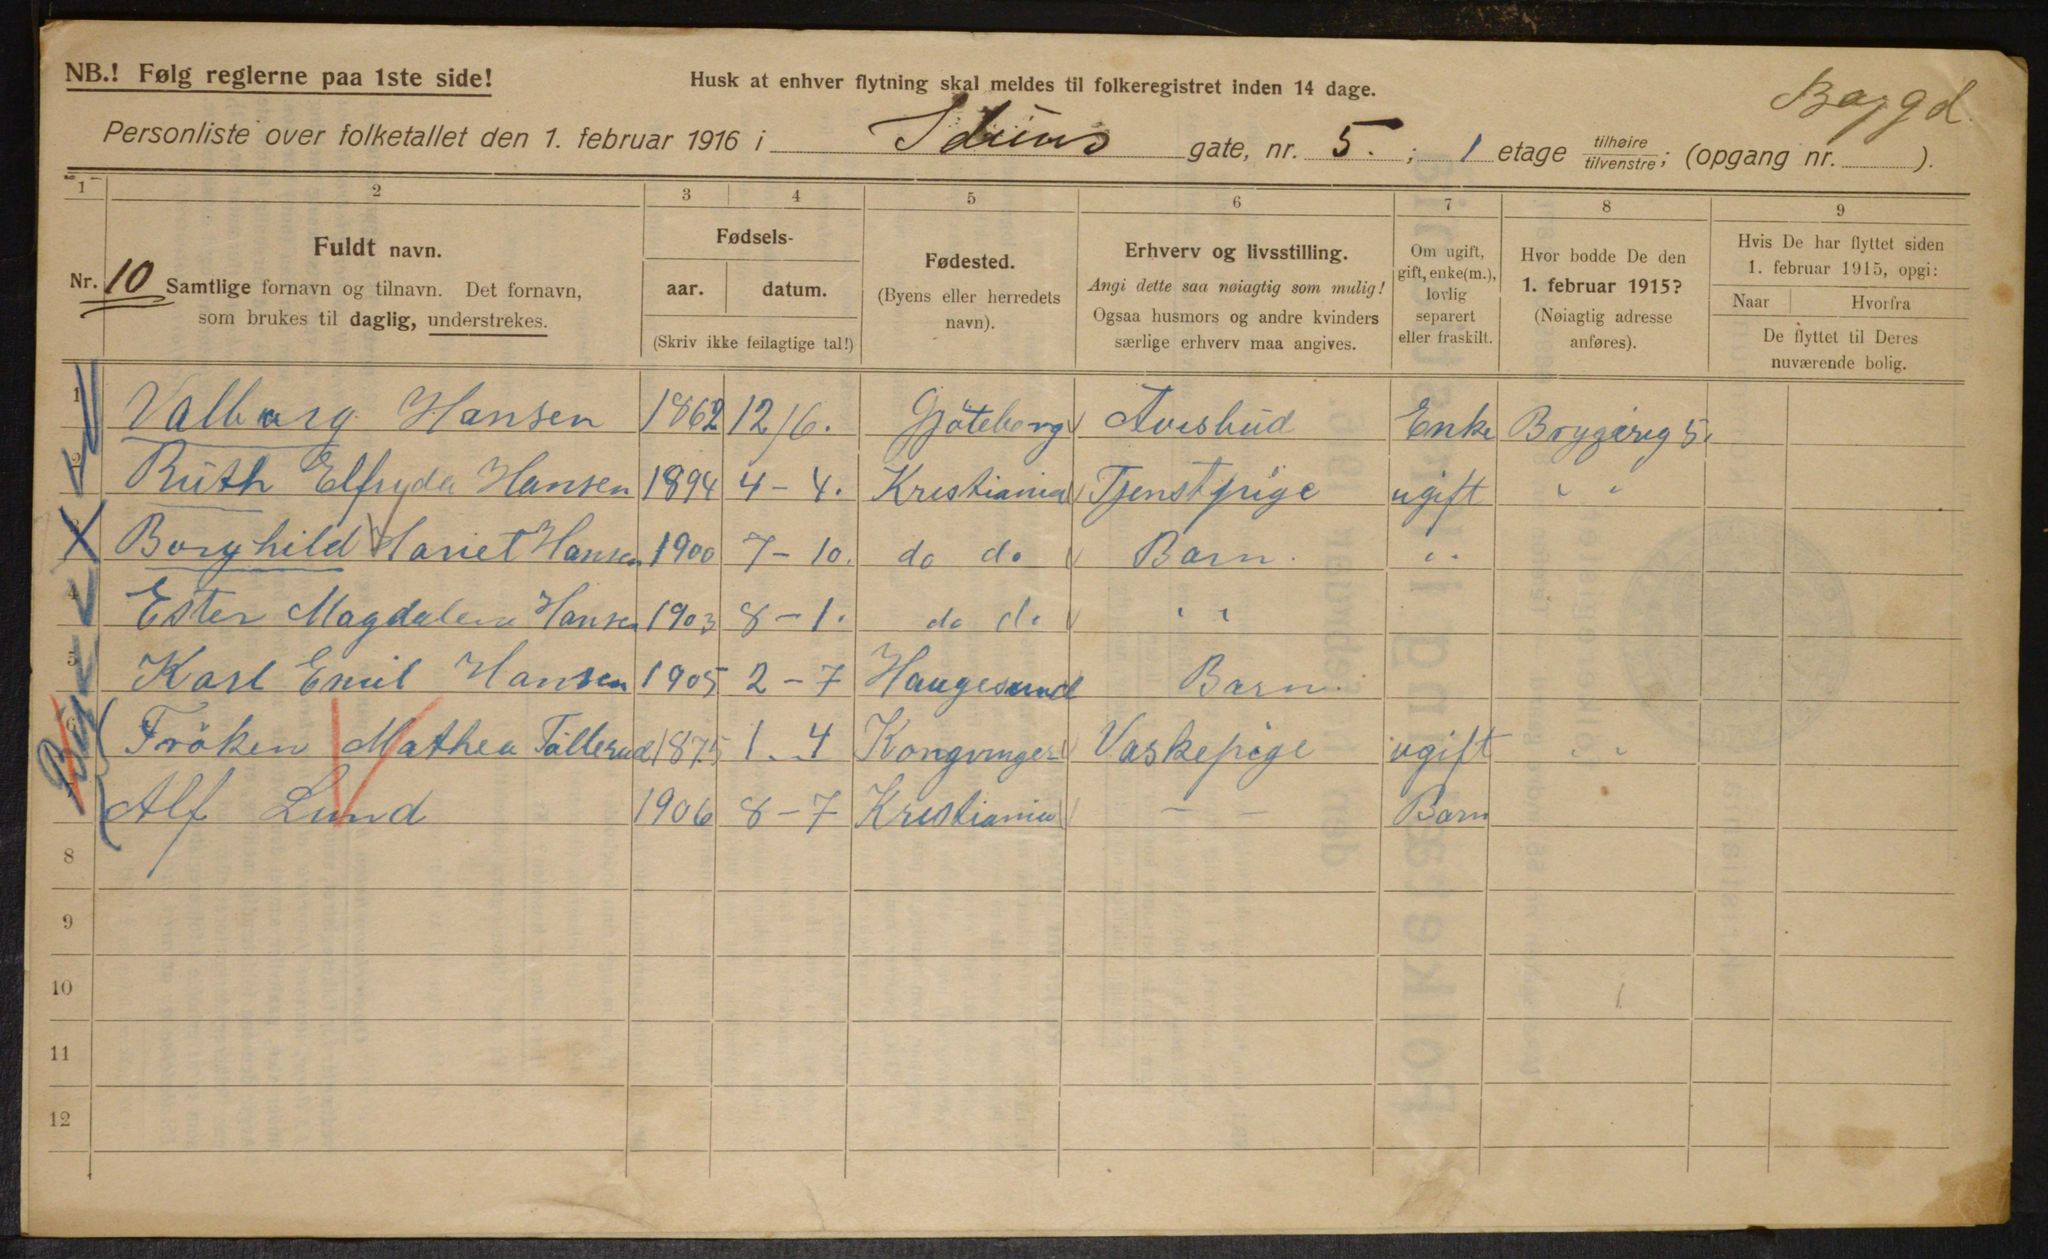 NB.! Følg reglerne paa 1ste side!
Husk at enhver flytning skal meldes til folkeregistret inden 14 dage.
Personliste over folketallet den 1. februar 1916 i Iduns gate, nr. 5. ; 1 etage tilhøire/tilvenstre; (opgang nr. ).
1 2 3 4 5 6 7 8 9
Nr. 10
Fuldt navn.
Samtlige fornavn og tilnavn. Det fornavn,
som brukes til daglig, understrekes.
Fødsels-
aar. datum.
(Skriv ikke feilagtige tal!)
Fødested.
(Byens eller herredets
navn).
Erhverv og livsstilling.
Angi dette saa nøiagtig som mulig!
Ogsaa husmors og andre kvinders
særlige erhverv maa angives.
Om ugift,
gift, enke(m.),
lovlig
separert
eller fraskilt.
Hvor bodde De den
1. februar 1915?
(Nøiagtig adresse
anføres).
Hvis De har flyttet siden
1. februar 1915, opgi:
Naar Hvorfra
De flyttet til Deres
nuværende bolig.
1 Valborg Hansen 1862 12/6. Gjöteborg Avisbud Enke Bryggerig 5.
2 Ruth Elfryda Hansen 1894 4-4. Kristiania Tjenstpige ugift " "
3 Borghild Hariet Hansen 1900 7-10. do do Barn. " "
4 Ester Magdalena Hansen 1903 8-1. do do " "
5 Karl Emil Hansen 1905 2-7 Haugesund Barn.
6 Fröken Mathea Tøllerud 1875 1.-4 Kongvinger Vaskepige ugift " "
Alf Lund 1906 8-7 Kristiania — — Barn
8
9
10
11
12